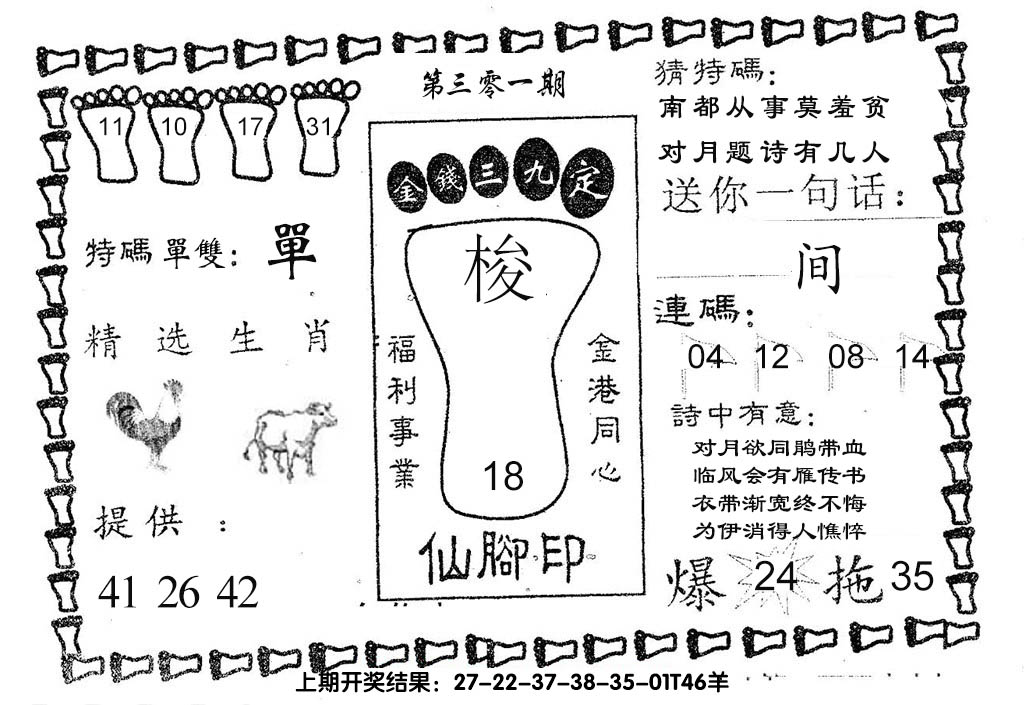 第三零一期
11 10 17 31
特碼單雙：單
精选生肖
提供：
41 26 42
金錢三九定
梭
福利事業
金港同心
18
仙腳印
猜特碼：
南都从事莫羞贫
对月题诗有几人
送你一句话：
间
連碼：
04 12 08 14
詩中有意：
对月欲同鹃带血
临风会有雁传书
衣带渐宽终不悔
为伊消得人憔悴
爆 24 拖 35
上期开奖结果：27-22-37-38-35-01T46羊